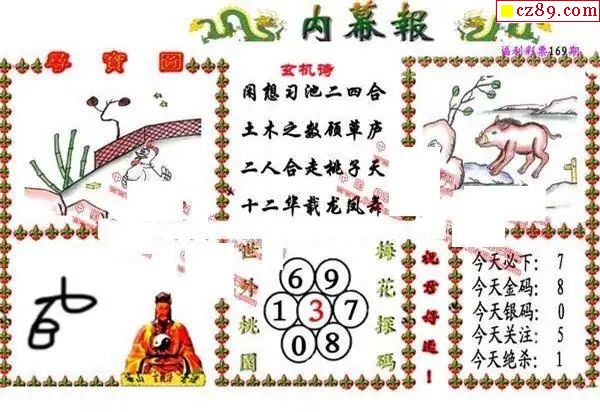 cz89.com
内幕報
福利彩票169期
寻寳圖
玄机诗
闲想习池二四合
土木之数顾草庐
二人合走桃子天
十二华载龙凤舞
世外桃園
6 9
1 3 7
0 8
梅花探碼
祝君好运！
今天必下：7
今天金码：8
今天银码：0
今天关注：5
今天绝杀：1